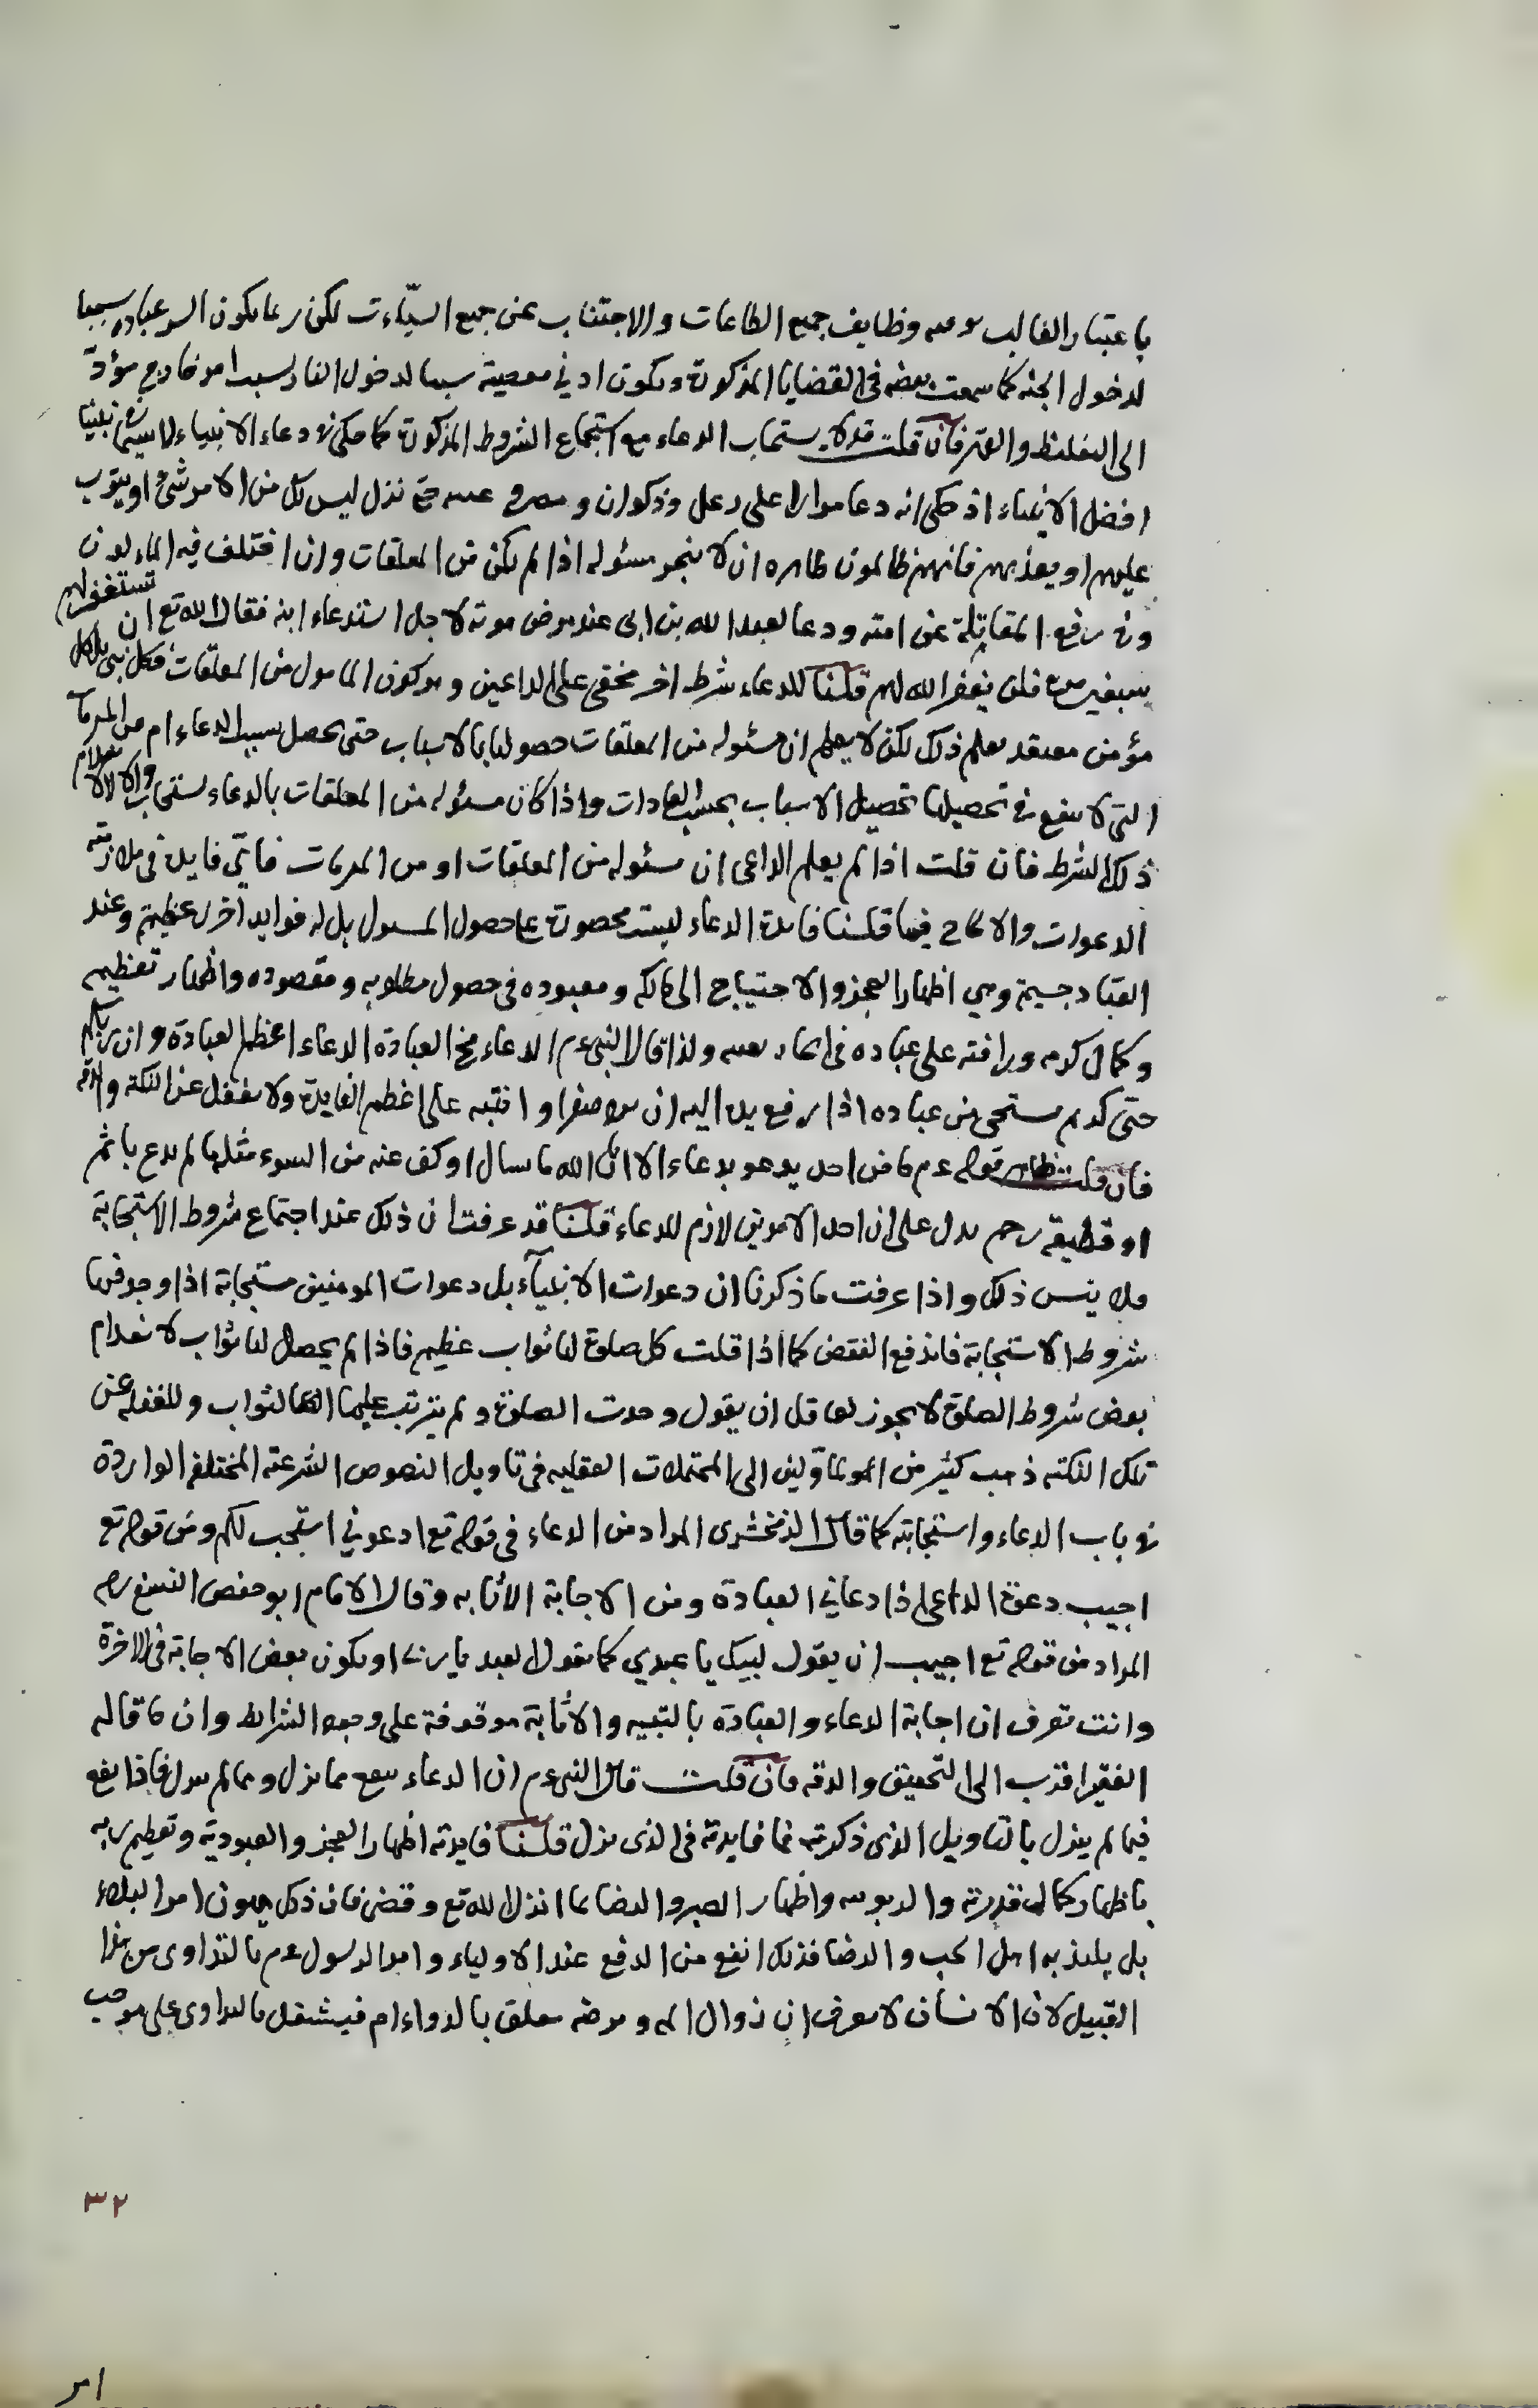 باعتبار الغالب وظايف جميع الطاعات والاجتناب عن جميع السيّاءت لكن ربما يكون السر عباده سببا
لدخول الجنه كما سمعت بعضه فى القضايا المذكورة ويكون ادني معصية سببا لدخول النار لسبب امر خارج مؤدّ
الى التغليظ والقهر فان قلت قد لا يستجاب الدعاء مع استجماع الشروط المذكورة كما حكى فى دعاء الانبياء لا سيما فى نبينا
افضل الانبياء اذ حكى انه دعا مرارا على رعل وذكوان و حتى نزل ليس لك من الامر شئ او يتوب
عليهم او يعذبهم فانهم ظالمون ظاهره ان لا ينجو مسئوله اذا لم يكن من المعلقات وان اختلف فيه
وفى رفع المقاتلة عن امته ودعا لعبد الله بن ابى عند مرض موته لاجل استدعاء ابنه فقال الله تع ان تستغفر لهم
سبعين مرة فلن يغفر الله لهم قلنا للدعاء شرط اخر مخفى على الداعين وهو كون المامول من المعلقات فكل نبى بل كل
مؤمن معتقد يعلم ذلك لكن لا يعلم ان مسئوله من المعلقات حصولها بالاسباب حتى يحصل بسبب الدعاء ام من المبرمات
التى لا ينفع فى تحصيلها تحصيل الاسباب بحسب العادات واذا كان مسئوله من المعلقات بالدعاء يستجاب والا لا لانعدام
ذلك الشرط فان قلت اذا لم يعلم الداعى ان مسئوله من المعلقات او من المبرمات فاىّ فايدة فى ملازمته
الدعوات والالحاح فيها قلنا فايدة الدعاء ليست محصورة على حصول المسول بل له فوايد اخرى عظيمة وعند
العباد جسيمة وهى اظهار العجز والاحتياج الى مالكه ومعبوده فى حصول مطلوبه ومقصوده واظهار تعظيمه
وكمال كرمه ورافته على عباده فى ولذا قال النبى عم الدعاء مخ العبادة الدعاء اعظم العبادة وان ربكم
حتى كريم يستحى من عباده اذا رفع يده اليه ان يردها صفرا وانتبه على اعظم الفايدة ولا تغفل عن النكته والدقه
فان قلت ظاهر قوله عم ما من احد يدعو بدعاء الا اتاه الله ما سال او كف عنه من السوء مثلها لم يدع باثم
او قطيعة رحم يدل على ان احد الامرين لازم للدعاء قلنا قد عرفت ان ذلك عند اجتماع شروط الاستجابة
ولا ينس ذلك واذا عرفت ما ذكرنا ان دعوات الانبيآء بل دعوات المومنين مستجابة اذا وجد فيها
شروط الاستجابة فاندفع النقض كما اذا قلت كل صلوة لها ثواب عظيم فاذا لم يحصل لها ثواب لانعدام
بعض شروط الصلوة لا يجوز لعاقل ان يقول وجدت الصلوة ولم يترتب عليها الثواب وللغفله عن
تلك النكته ذهب كثير من الى المحتملات العقليه فى تاويل النصوص الشرعته المختلفه الواردة
فى باب الدعاء واستجابته كما قال الزمخشرى المراد من الدعاء فى قوله تع ادعوني استجب لكم ومن قوله تع
اجيب دعوة الداعى اذا دعاني العبادة ومن الاجابة الأثابه وقال الامام ابو حفص النسفى رحم
المراد من قوله تع اجيب ان يقول لبيك يا عبدي كما يقول العبد يا رب او يكون بعض الاجابة فى الاخرة
وانت تعرف ان اجابة الدعاء والعبادة بالتبيه والأثابة موقوفة على وجود الشرائط وان ما قاله
الفقير اقرب الى التحقيق والدقه فان قلت قال النبى عم ان الدعاء ينفع مما نزل ومما لم ينزل فاذا نفع
فيما لم ينزل بالتاويل الذى ذكرته فما فايدته فى الذى نزل قلنا فايدته اظهار العجز والعبودية وتعظيم ربه
باظهار كمال قدرته والربوبيه واظهار الصبر والرضا بما انزل الله تع وقضى فان ذلك يهون امر البلاء
بل يلتذ به اهل الحب والرضا فذلك انفع من الدفع عند الاولياء وامر الرسول عم بالتداوى من هذا
القبيل لان الانسان لا يعرف ان زوال الم ومرضه معلق بالدواء ام فيشتغل بالتداوى على موجب
٣٢
امر